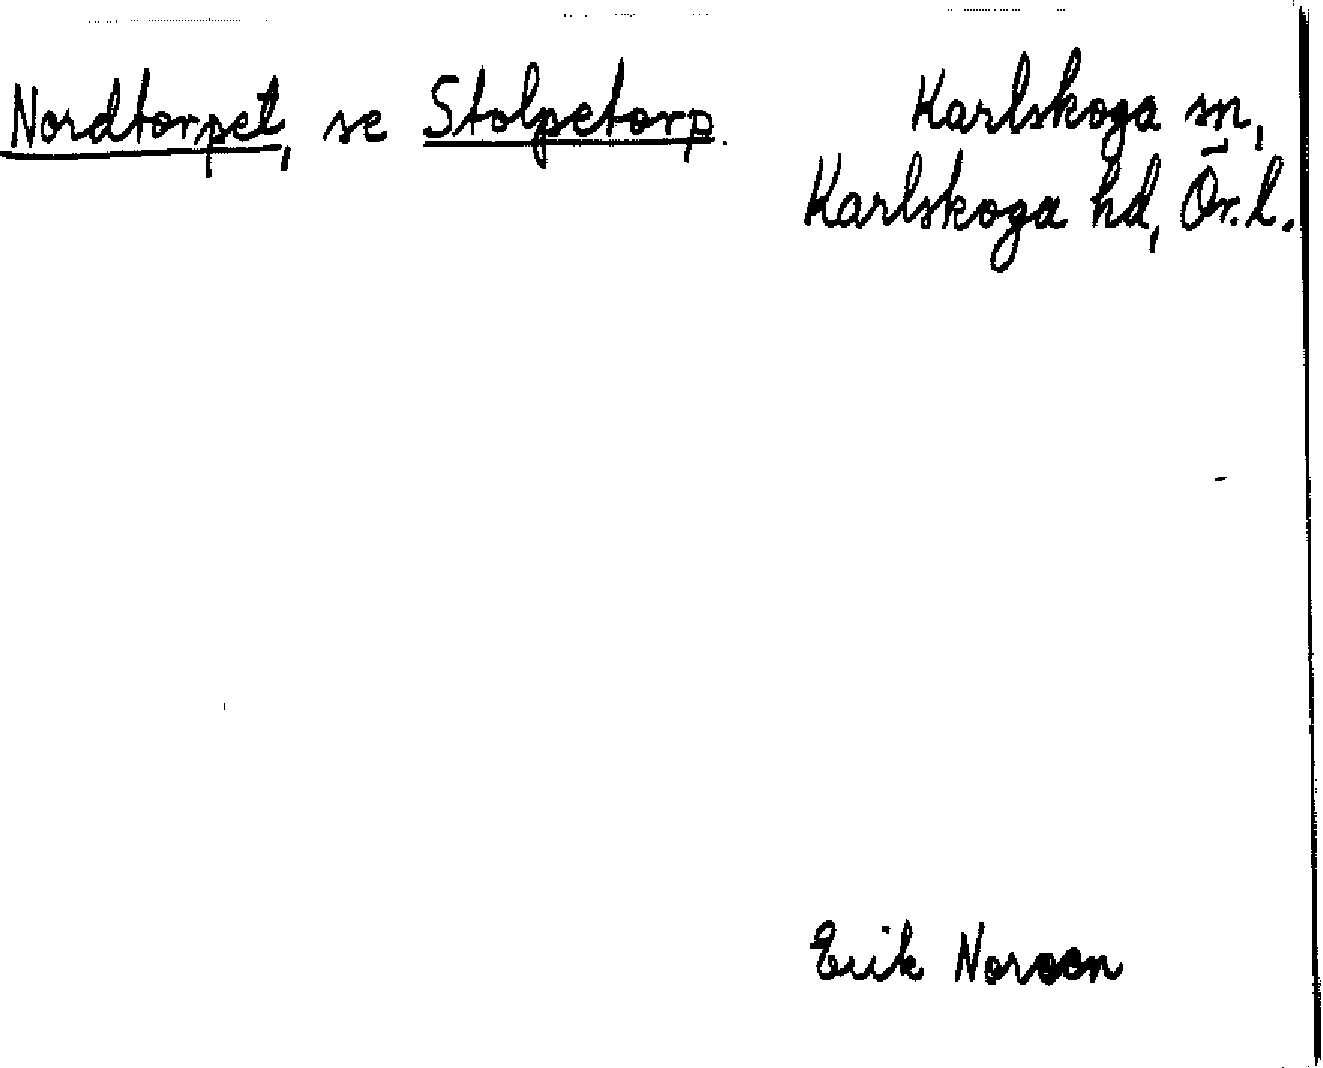 Nordtorpet, se Stolpetorp.
Karlskoga sn,
Karlskoga hd, Ör. l.
Erik Noreen